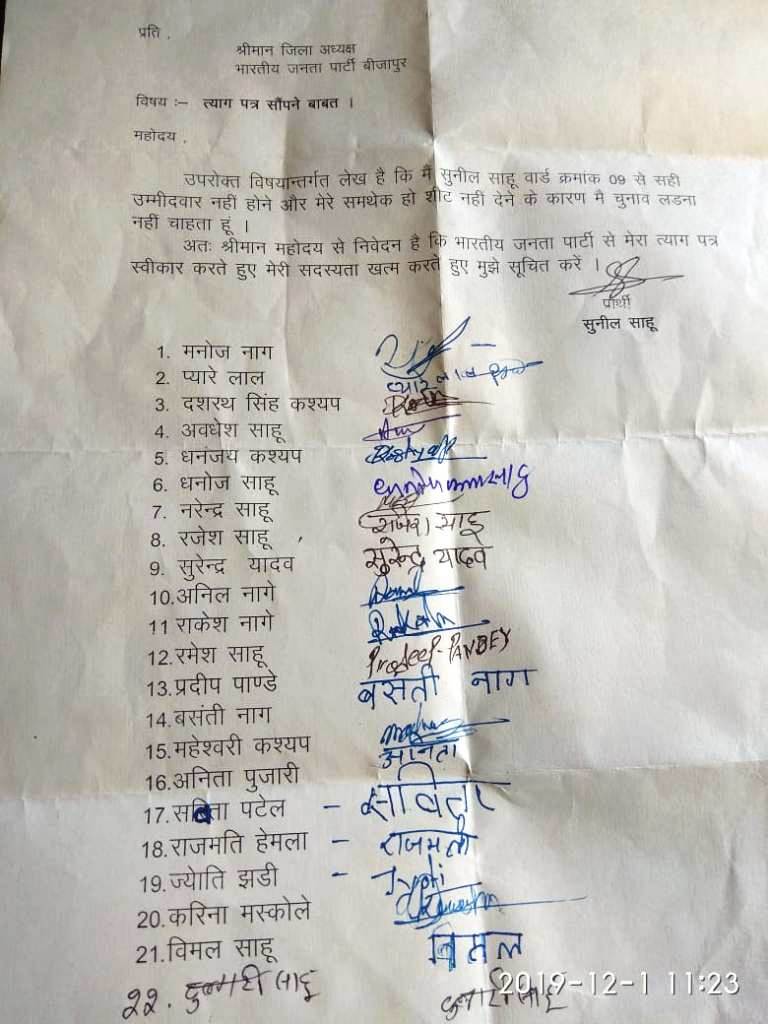 प्रति ,
श्रीमान जिला अध्यक्ष
भारतीय जनता पार्टी बीजापुर
विषय :– त्याग पत्र सौंपने बाबत ।
महोदय ,
उपरोक्त विषयान्तर्गत लेख है कि मैं सुनील साहू वार्ड क्रमांक 09 से सही
उम्मीदवार नहीं होने और मेरे समथेक हो शीट नहीं देने के कारण मै चुनाव लडना
नहीं चाहता हूं ।
अतः श्रीमान महोदय से निवेदन है कि भारतीय जनता पार्टी से मेरा त्याग पत्र
स्वीकार करते हुए मेरी सदस्यता खत्म करते हुए मुझे सूचित करें ।
प्रार्थी
सुनील साहू
1. मनोज नाग
2. प्यारे लाल प्यारे लाल
3. दशरथ सिंह कश्यप
4. अवधेश साहू
5. धनंजय कश्यप
6. धनोज साहू
7. नरेन्द्र साहू
8. रजेश साहू , साहू
9. सुरेन्द्र यादव सुरेन्द्र यादव
10.अनिल नागे
11 राकेश नागे
12.रमेश साहू Pradeep PANDEY
13.प्रदीप पाण्डे बसंती नाग
14.बसंती नाग
15.महेश्वरी कश्यप अनिता
16.अनिता पुजारी
17. सबिता पटेल – सावितर
18.राजमति हेमला – राजमती
19.ज्योति झडी – Jyoti
20.करिना मस्कोले
21.विमल साहू विमल
22. कुमारी साहू
2019-12-1 11:23